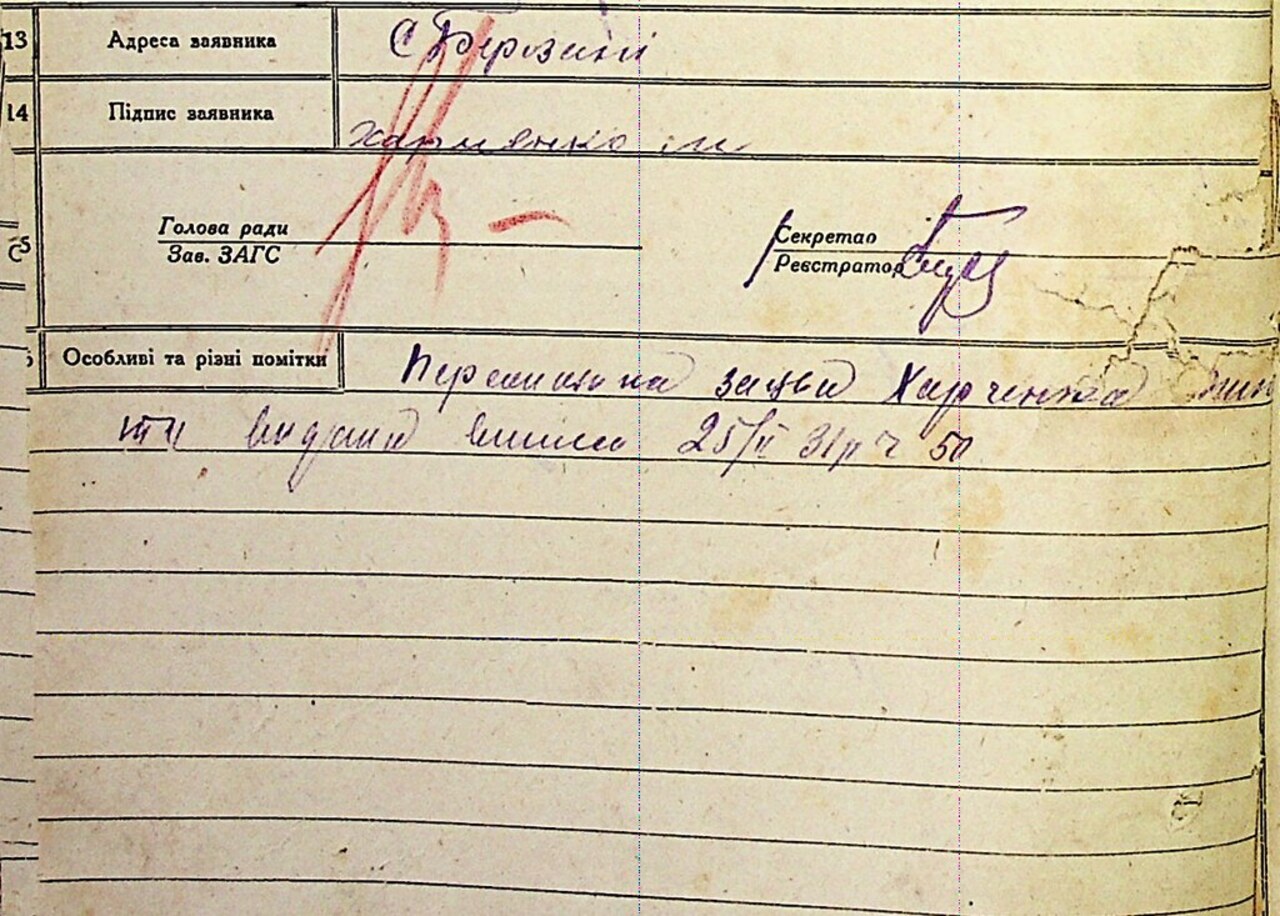 13 Адреса заявника С Березані
14 Підпис заявника Харченко
Голова ради
Зав. ЗАГС
Секретар
Реєстратор
Особливі та різні помітки заява Харченка
видана 25/II 31р ч 50